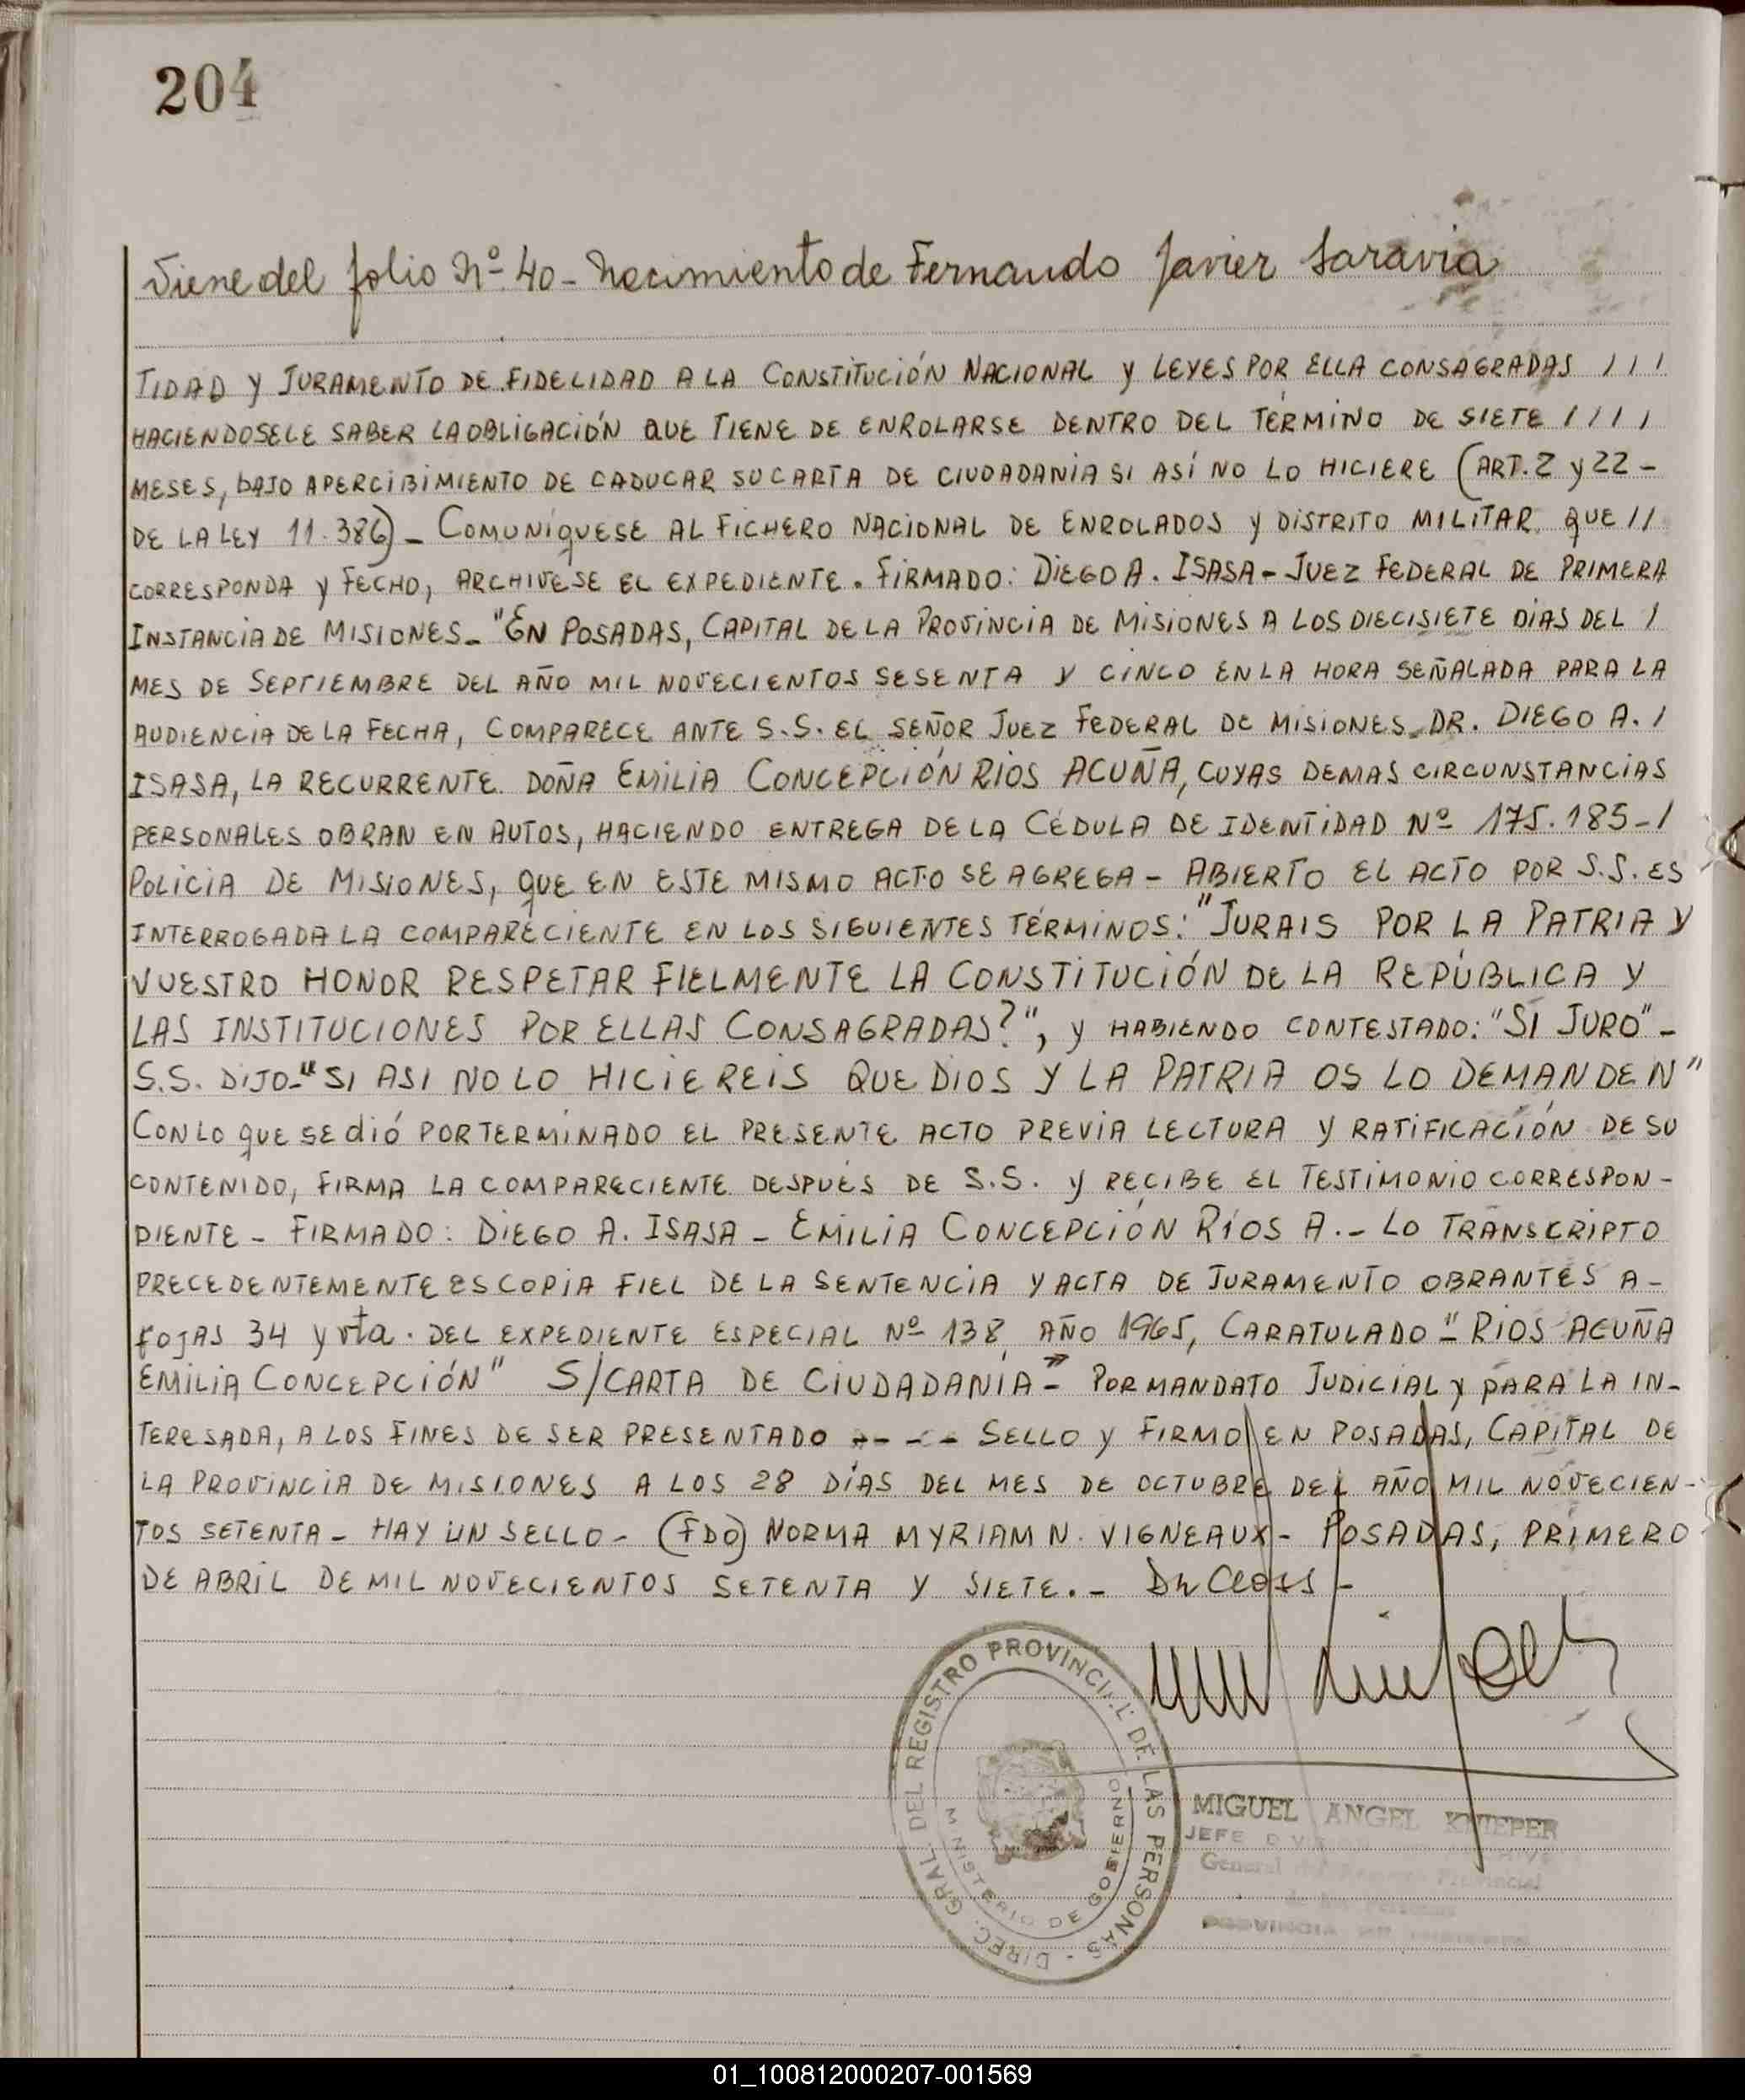 204
Viene del folio Nº 40 - Nacimiento de Fernando Javier Saravia
TIDAD Y JURAMENTO DE FIDELIDAD A LA CONSTITUCIÓN NACIONAL Y LEYES POR ELLA CONSAGRADAS ///
HACIENDOSELE SABER LA OBLIGACIÓN QUE TIENE DE ENROLARSE DENTRO DEL TÉRMINO DE SIETE ////
MESES, BAJO APERCIBIMIENTO DE CADUCAR SU CARTA DE CIUDADANIA SI ASÍ NO LO HICIERE (ART. 2 y 22 -
DE LA LEY 11.386) - COMUNÍQUESE AL FICHERO NACIONAL DE ENROLADOS Y DISTRITO MILITAR QUE //
CORRESPONDA Y FECHO, ARCHIVESE EL EXPEDIENTE. FIRMADO: DIEGO A. ISASA - JUEZ FEDERAL DE PRIMERA
INSTANCIA DE MISIONES - "EN POSADAS, CAPITAL DE LA PROVINCIA DE MISIONES A LOS DIECISIETE DIAS DEL /
MES DE SEPTIEMBRE DEL AÑO MIL NOVECIENTOS SESENTA Y CINCO EN LA HORA SEÑALADA PARA LA
AUDIENCIA DE LA FECHA, COMPARECE ANTE S.S. EL SEÑOR JUEZ FEDERAL DE MISIONES DR. DIEGO A. /
ISASA, LA RECURRENTE DOÑA EMILIA CONCEPCIÓN RIOS ACUÑA, CUYAS DEMAS CIRCUNSTANCIAS
PERSONALES OBRAN EN AUTOS, HACIENDO ENTREGA DE LA CÉDULA DE IDENTIDAD Nº 175.185 - /
POLICIA DE MISIONES, QUE EN ESTE MISMO ACTO SE AGREGA - ABIERTO EL ACTO POR S.S. ES
INTERROGADA LA COMPARECIENTE EN LOS SIGUIENTES TÉRMINOS: "JURAIS POR LA PATRIA Y
VUESTRO HONOR RESPETAR FIELMENTE LA CONSTITUCIÓN DE LA REPÚBLICA Y
LAS INSTITUCIONES POR ELLAS CONSAGRADAS?", Y HABIENDO CONTESTADO: "SI JURO" -
S.S. DIJO - "SI ASI NO LO HICIEREIS QUE DIOS Y LA PATRIA OS LO DEMANDEN"
CON LO QUE SE dió POR TERMINADO EL PRESENTE ACTO PREVIA LECTURA Y RATIFICACIÓN DE SU
CONTENIDO, FIRMA LA COMPARECIENTE DESPUÉS DE S.S. Y RECIBE EL TESTIMONIO CORRESPON-
DIENTE - FIRMADO: DIEGO A. ISASA - EMILIA CONCEPCIÓN RÍOS A. - LO TRANSCRIPTO
PRECEDENTEMENTE ES COPIA FIEL DE LA SENTENCIA Y ACTA DE JURAMENTO OBRANTES A -
FOJAS 34 y vta. DEL EXPEDIENTE ESPECIAL Nº 138 AÑO 1965, CARATULADO "RIOS ACUÑA
EMILIA CONCEPCIÓN" S/CARTA DE CIUDADANÍA" - POR MANDATO JUDICIAL Y PARA LA IN-
TERESADA, A LOS FINES DE SER PRESENTADO - - - - SELLO Y FIRMO EN POSADAS, CAPITAL DE
LA PROVINCIA DE MISIONES A LOS 28 DÍAS DEL MES DE OCTUBRE DEL AÑO MIL NOVECIEN-
TOS SETENTA - HAY UN SELLO - (FDO) NORMA MYRIAM N. VIGNEAUX - POSADAS, PRIMERO
DE ABRIL DE MIL NOVECIENTOS SETENTA Y SIETE. -
DIREC. GRAL. DEL REGISTRO PROVINCIAL DE LAS PERSONAS -
MINISTERIO DE GOBIERNO
MIGUEL ANGEL KNIEPER
JEFE
General Provincial
01_100812000207-001569